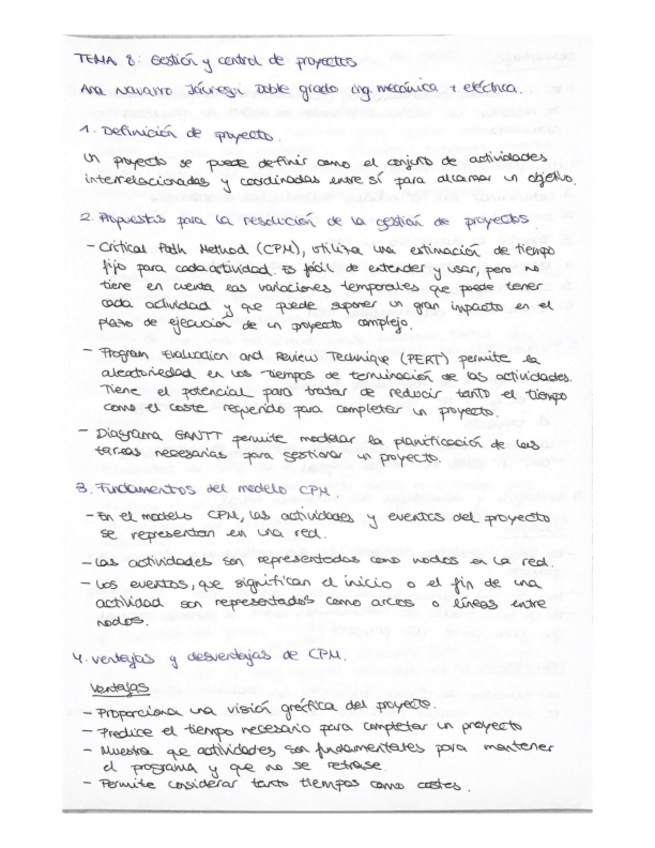 TEMA 8: Gestión y control de proyectos
Ana Navarro Jáuregui Doble grado ing. mecánica + eléctrica.
1. Definición de proyecto.
Un proyecto se puede definir como el conjunto de actividades
interrelacionadas y coordinadas entre sí para alcanzar un objetivo.
2. Propuestas para la resolución de la gestión de proyectos
- Critical Path Method (CPM), utiliza una estimación de tiempo
fijo para cada actividad. Es fácil de entender y usar, pero no
tiene en cuenta las variaciones temporales que puede tener
cada actividad y que puede suponer un gran impacto en el
plazo de ejecución de un proyecto complejo.
- Program Evaluation and Review Technique (PERT) permite la
aleatoriedad en los tiempos de terminación de las actividades.
Tiene el potencial para tratar de reducir tanto el tiempo
como el coste requerido para completar un proyecto.
- Diagrama GANTT permite modelar la planificación de las
tareas necesarias para gestionar un proyecto.
3. Fundamentos del modelo CPM.
- En el modelo CPM, las actividades y eventos del proyecto
se representan en una red.
- Las actividades son representadas como nodos en la red.
- Los eventos, que significan el inicio o el fin de una
actividad son representados como arcos o líneas entre
nodos.
4. Ventajas y desventajas de CPM.
Ventajas
- Proporciona una visión gráfica del proyecto.
- Predice el tiempo necesario para completar un proyecto
- Muestra que actividades son fundamentales para mantener
el programa y que no se retrase.
- Permite considerar tanto tiempos como costes.